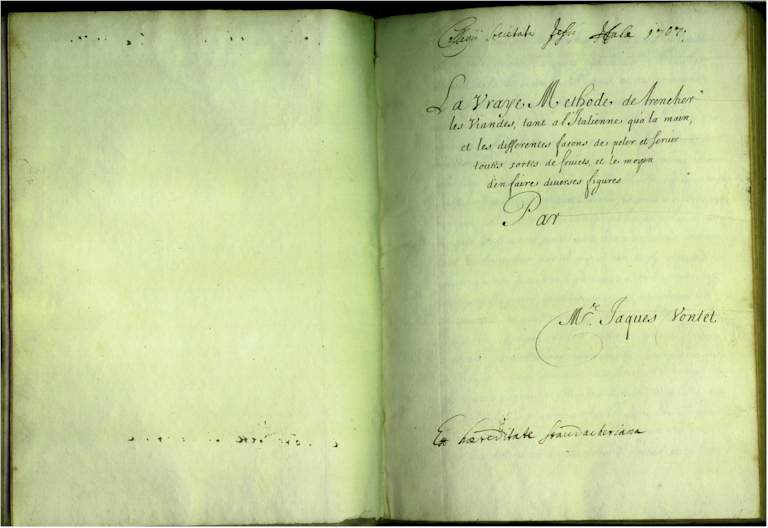 Collegij Societatis Jesu Halae 1707.
La Vraye Methode de troncher
les Viandes, tant a l'Italienne qua la main,
et les differentes façons de peler et servir
touttes sortes de fruiets, et le moyen
d'en faire diverses figures
Par
Mre. Jaques Vontet
Ex haereditate